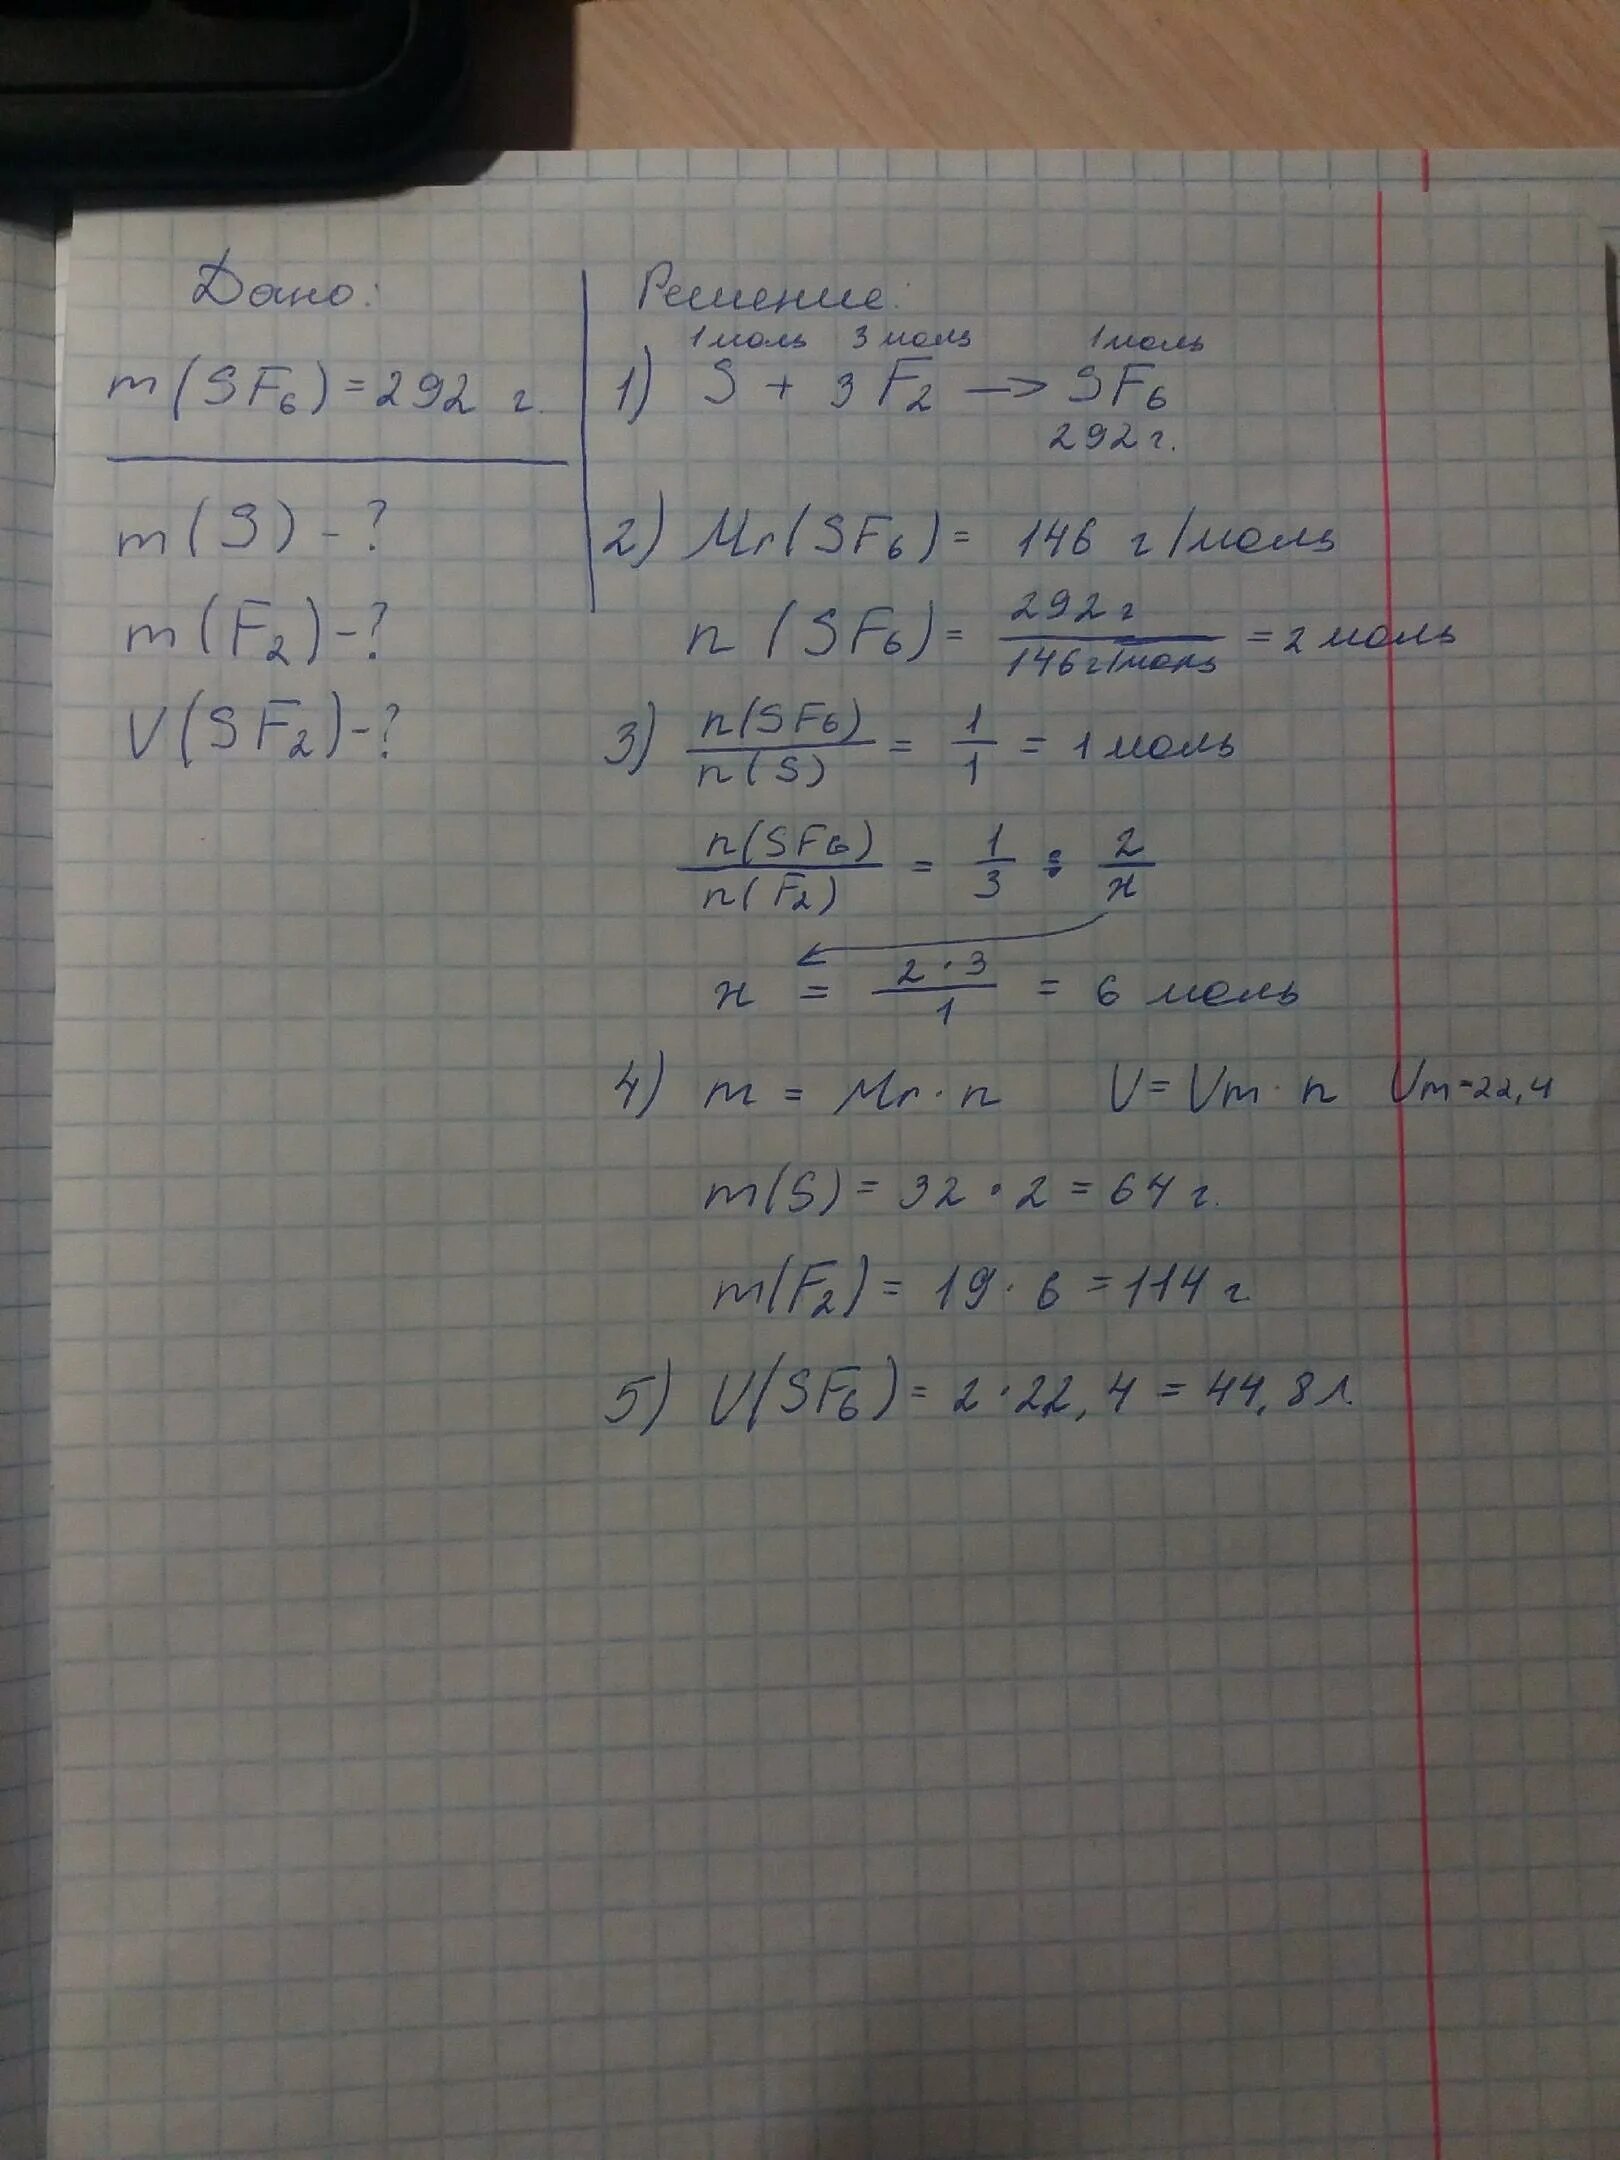 Дано:
m(SF₆)=292 г.
m(S)-?
m(F₂)-?
V(SF₂)-?
Решение:
1моль 3 моль 1моль
1) S + 3F₂ → SF₆
292г.
2) Mr(SF₆)= 146 г/моль
n (SF₆)= 292г/146г/моль =2 моль
3) n(SF₆)/n(S) = 1/1 = 1 моль
n(SF₆)/n(F₂) = 1/3 = 2/x
x = 2·3/1 = 6 моль
4) m = Mr·n V= Vm·n Vm=22,4
m(S)=32·2=64 г.
m(F₂)= 19·6 =114 г
5) V(SF₆)= 2·22,4 = 44,8 л.